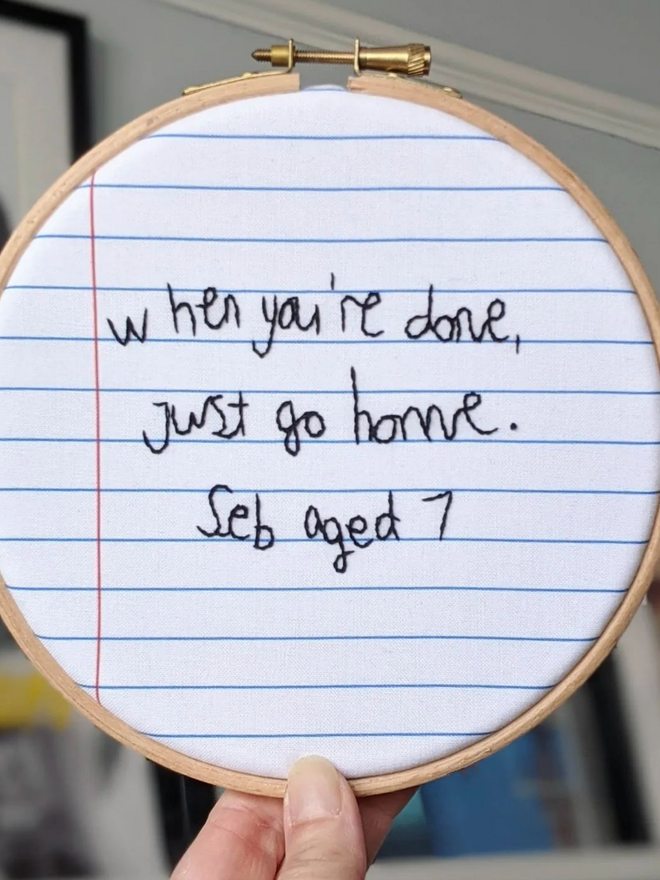 when you're done,
just go home.
Seb aged 7